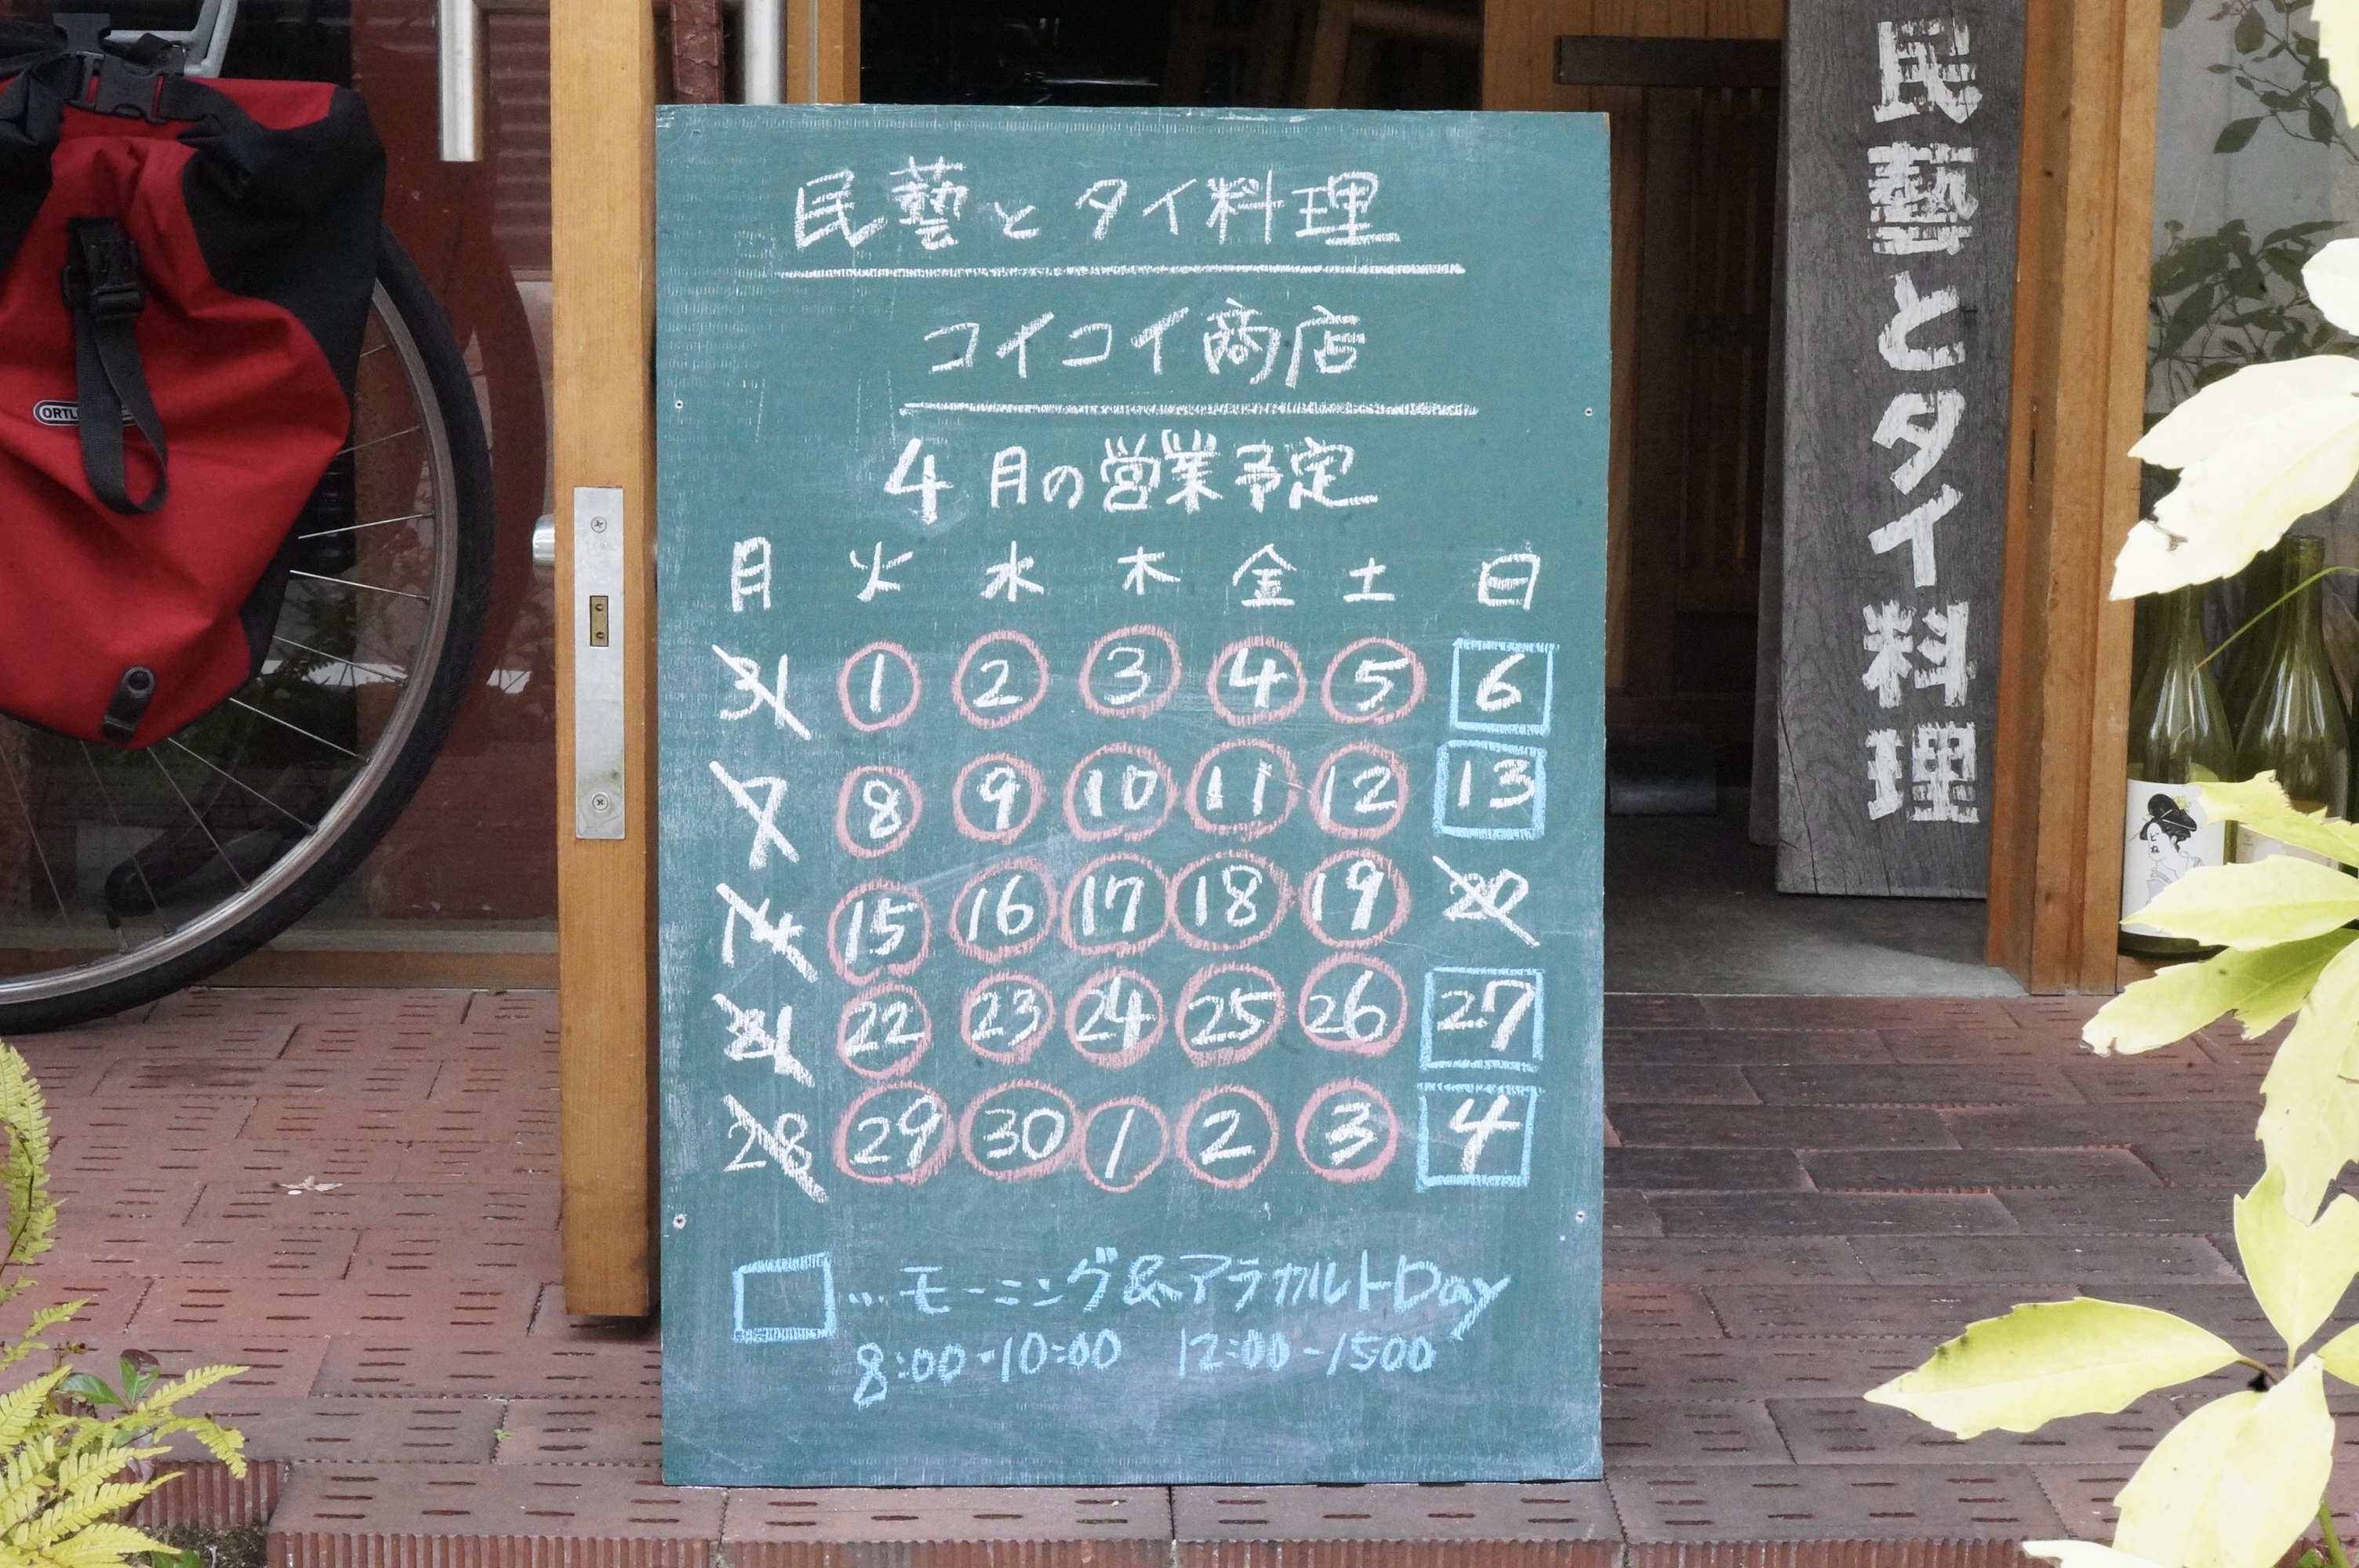 民藝とタイ料理
コイコイ商店
4月の営業予定
月 火 水 木 金 土 日
31 1 2 3 4 5 6
7 8 9 10 11 12 13
14 15 16 17 18 19 20
21 22 23 24 25 26 27
28 29 30 1 2 3 4
…モーニング&アラカルトDay
8:00-10:00 12:00-1500
民藝とタイ料理